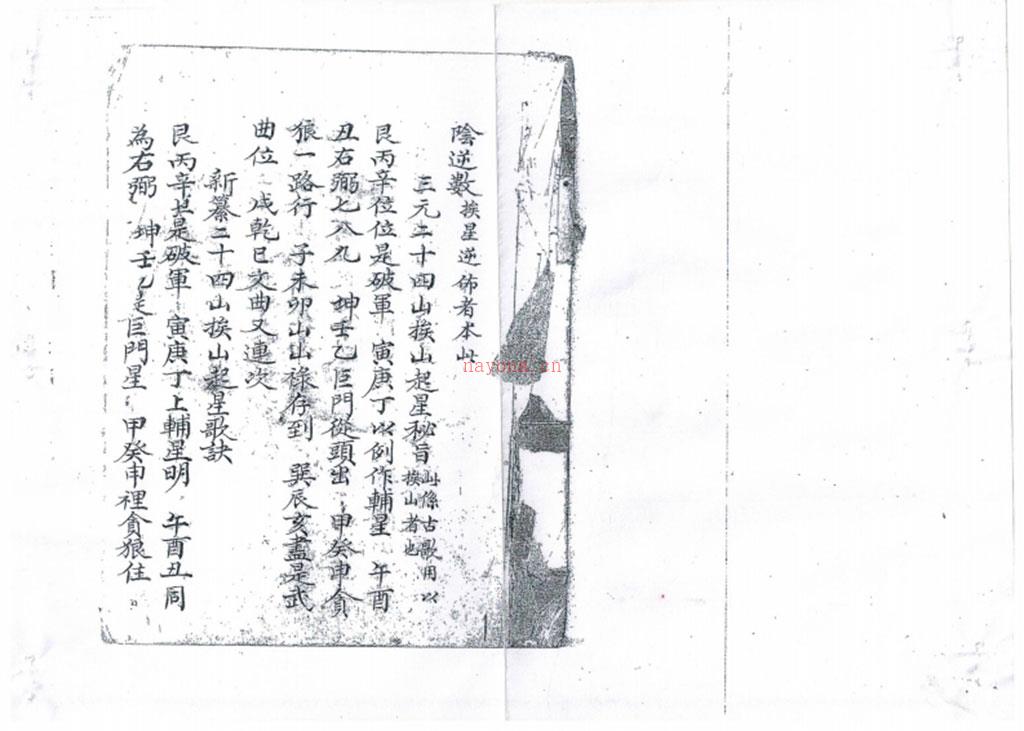 陰逆數挨星逆佈者本此
三元二十四山挨山起星秘旨此係古歌用以挨山者也
艮丙辛位位是破軍 寅庚丁以例作輔星 午酉
丑右弼七八九 坤壬乙巨門從頭出 甲癸申貪
狼一路行 子未卯山山祿存到 巽辰亥盡是武
曲位 戍乾巳文曲又連次
新纂二十四山挨山起星歌訣
艮丙辛上是破軍 寅庚丁上輔星明 午酉丑同
為右弼 坤壬乙是巨門星 甲癸申裡貪狼住。
nayona.cn